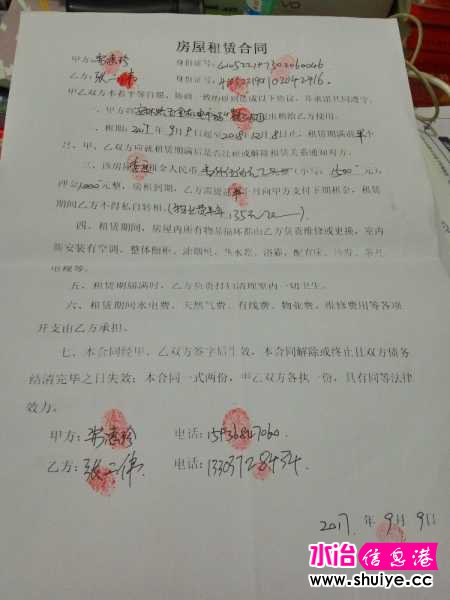 房屋租赁合同
甲方: 身份证号:
乙方:张二伟 身份证号:
甲乙双方本着平等自愿、协商一致的原则达成以下协议,并承诺共同遵守。
一、甲方将 出租给乙方使用。
二、租期:2017年9月9日起至2018年 月8日止,租赁期满前 个
月,甲、乙双方应就租赁期满后是否让租或解除租赁关系通知对方。
三、该房屋 租金人民币 (小写:1500 元),
押金1000元整,房租到期,乙方需提前 个月向甲方支付下期租金,租赁
期间乙方不得私自转租。(物业费半年135元 )
四、租赁期间,房屋内所有物品损坏都由乙方负责维修或更换,室内
新安装有空调、整体橱柜、油烟机、热水器、浴霸,配有床、沙发、茶几
电视等。
五、租赁期届满时,乙方负责打扫清理室内一切卫生。
六、租赁期间水电费、天然气费、有线费、物业费、维修费用等各项
开支由乙方承担。
七、本合同经甲、乙双方签字后生效,本合同解除或终止且双方债务
结清完毕之日失效;本合同一式两份,甲乙双方各执一份,具有同等法律
效力。
甲方: 电话:15936847060.
乙方:张二伟 电话:13303728434.
2017.年9月9日
水冶信息港
www.shuiye.cc